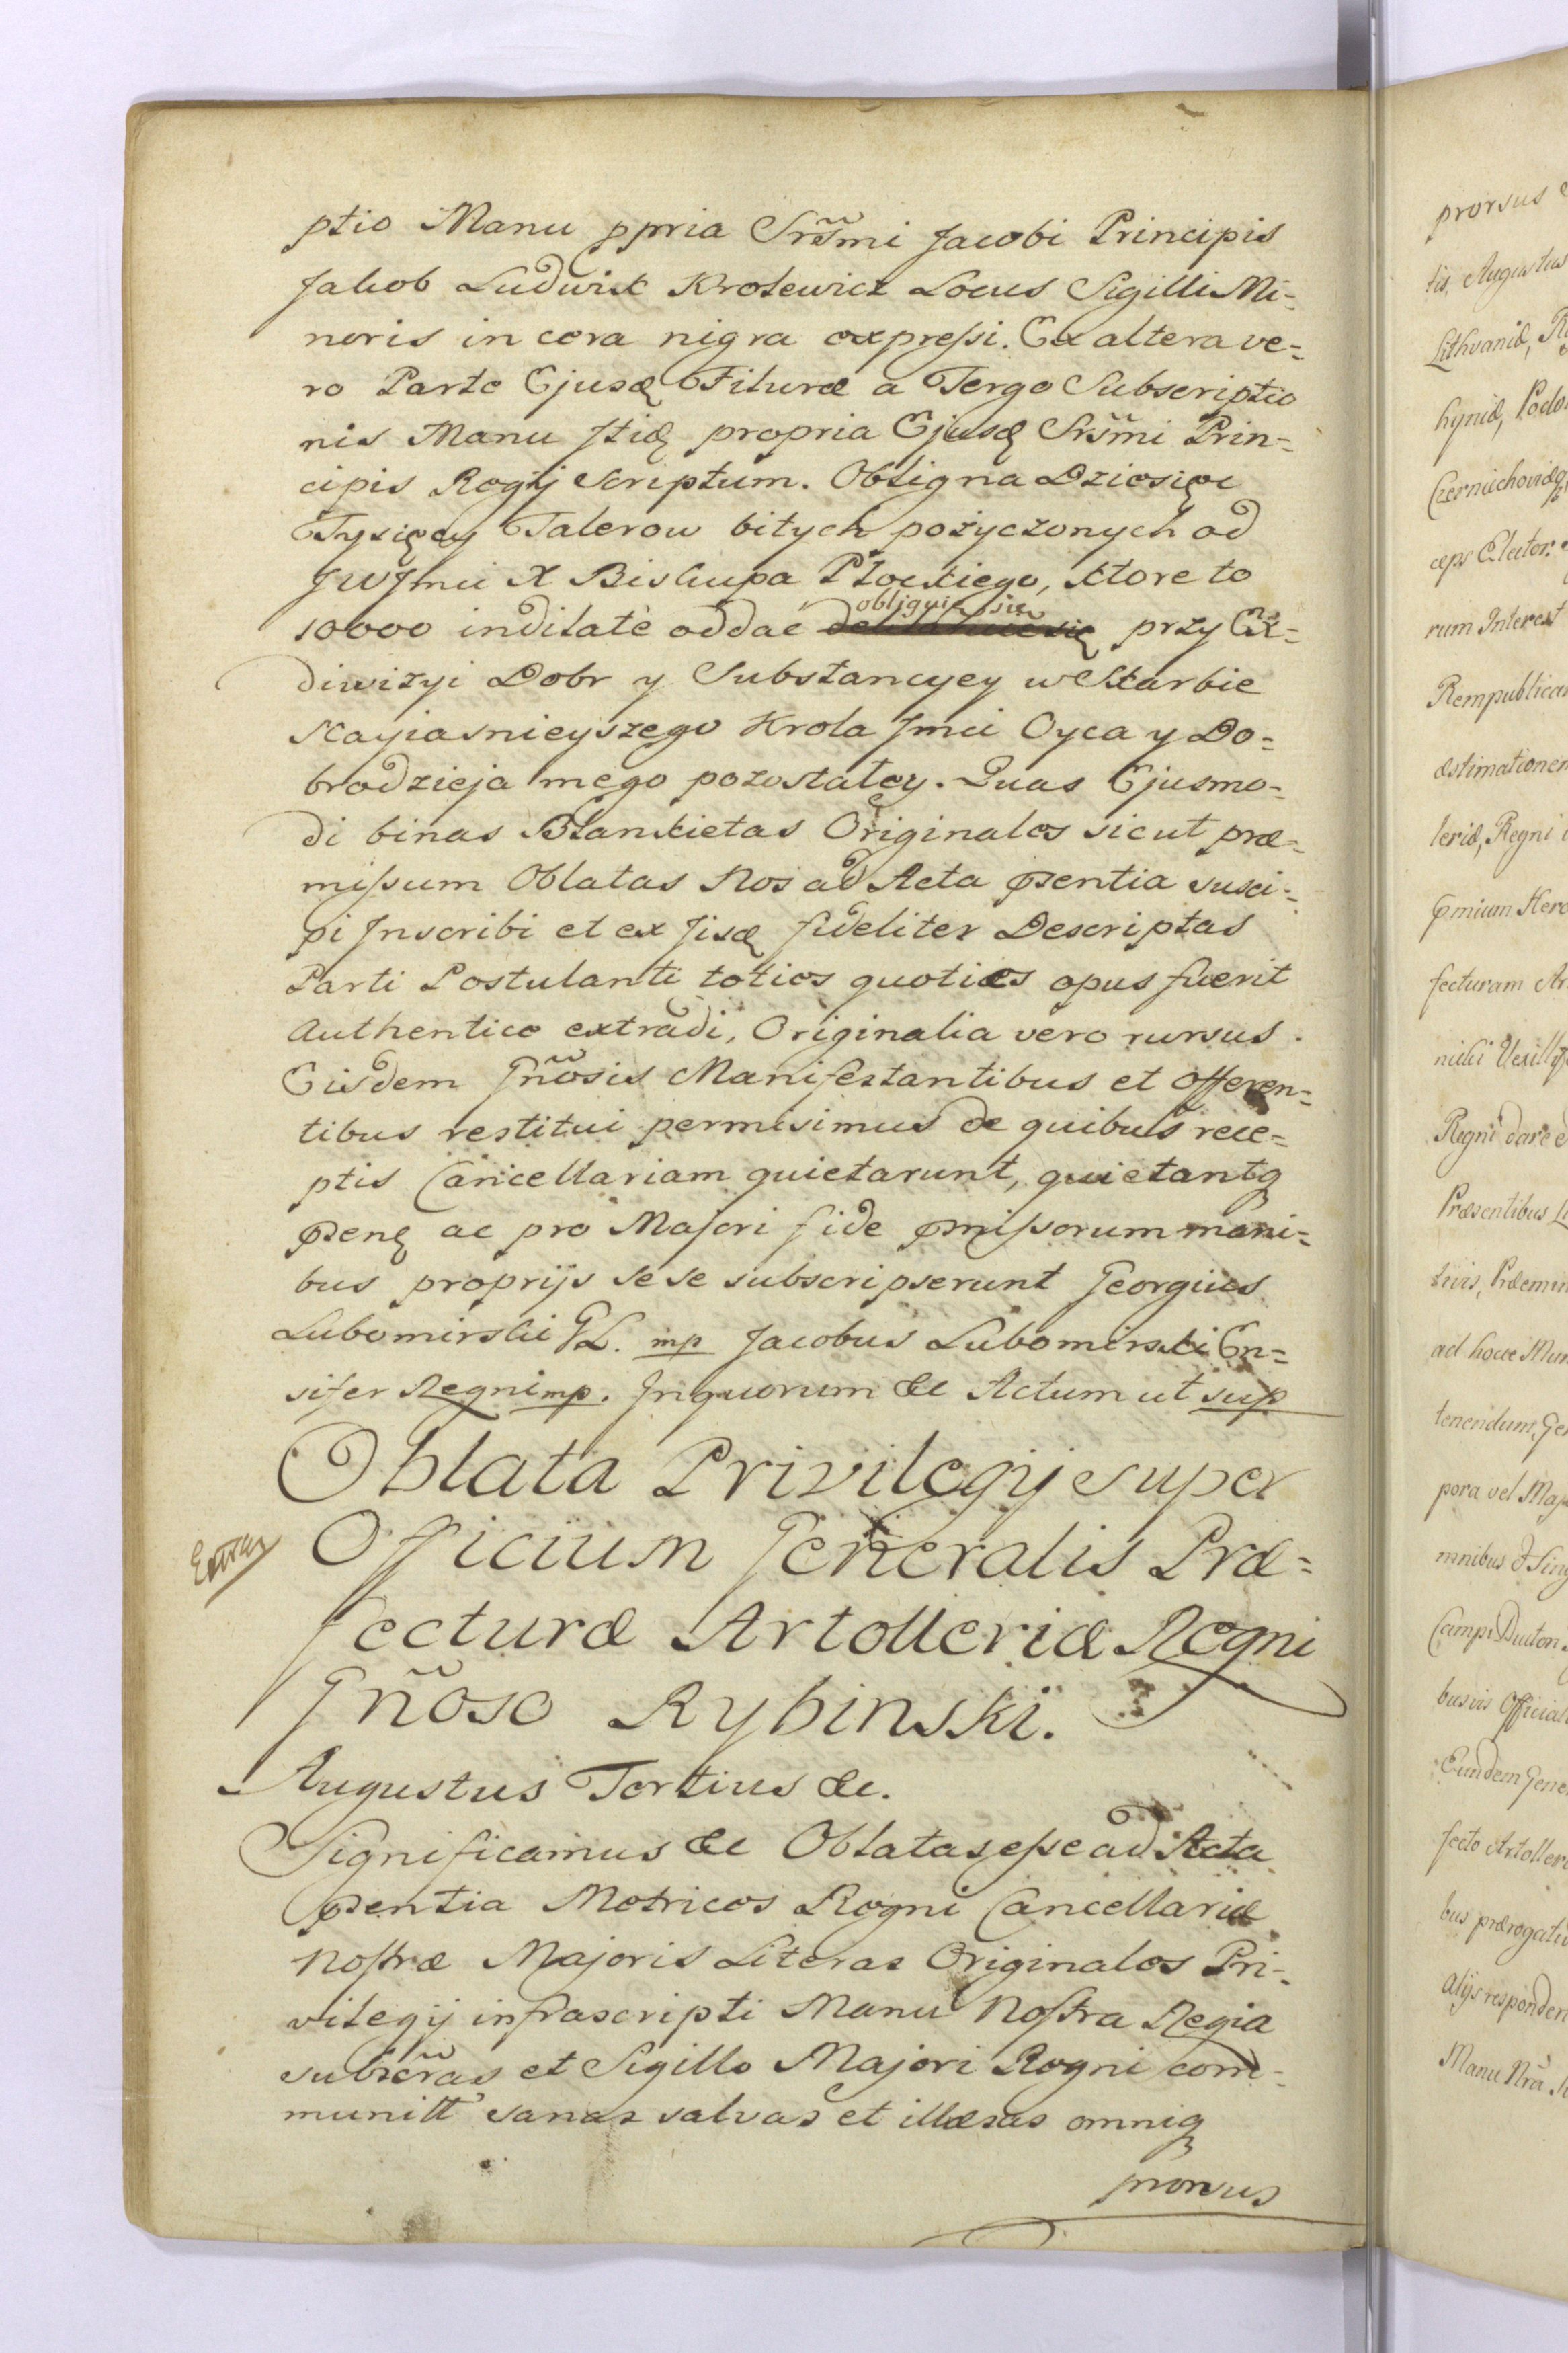 ptio Manu ppria Srs̃mi Jacobi Principis
Jakob Ludwik Krolewicz Locus Sigilli Mi=
noris in cera nigra expressi. Ex altera ve=
ro Parte Ejusq Filuræ a Tergo Subscriptio
nis Manu Itiq propria Ejusq Srs̃mi Prin=
cipis Regij Scriptum. Oblig na Dziesięc
Tysięcy Talerow bitych pożyczonych od
JWJmci X Biskupa Płockiego, ktore to
10000 indilatè oddać obliguię się przy Ex=
diwizyi Dobr y Substancyey w Skarbie
Nayiasnieyszego Krola Jmci Oyca y Do=
brodzieja mego pozostałey. Quas Ejusmo=
di binas Blankietas Originales sicut præ=
missum Oblatas Nos ad Acta pŝentia susci=
pi Inscribi et ex Iisq fideliter Descriptas
Parti Postulanti toties quoties opus fuerit
Authentice extradi, Originalia vero rursus
Eisdem Gñosis Manifestantibus et Offeren=
tibus restitui permisimus de quibus rece=
ptis Cancellariam quietarunt, quietantq
pŝenq ac pro Majori fide pmissorum mani=
bus proprijs sese subscripserunt Georgius
Lubomirski GL. mp Jacobus Lubomirski En=
sifer Regni mp. In quorum &c Actum ut sup
Oblata Privilegij super
Officium Generalis Præ=
fecturæ Artolleriæ Regni
Gñoso Rybinski.
Augustus Tertius &c.
Significamus &c Oblatas esse ad Acta
pŝentia Metrices Regni Cancellariæ
Nostræ Majoris Literas Originales Pri=
vilegij infrascripti Manu Nostra Regia
subscr̃as et Sigillo Majori Regni com=
munitt sanas salvas et illæsas omniq
prorsus
prorsus
tis, Augustus
Lithvaniæ,
hyniæ, Podo
Czerniechoviæq
ceps Elector.
rum Interest
Rempublicam
æstimationem
leriæ, Regni
pmium Hero
fecturam Ar
nicki Vexillif
Regni dare
Præsentibus
ad hocce Mun
tenendum, Gen
pora vel Maj
mnibus & Sing
Campi Ductor
busvis Official
Eundem Gene
fecto Artoller
bus prærogativ
alijs responden
Manu Nr̃a